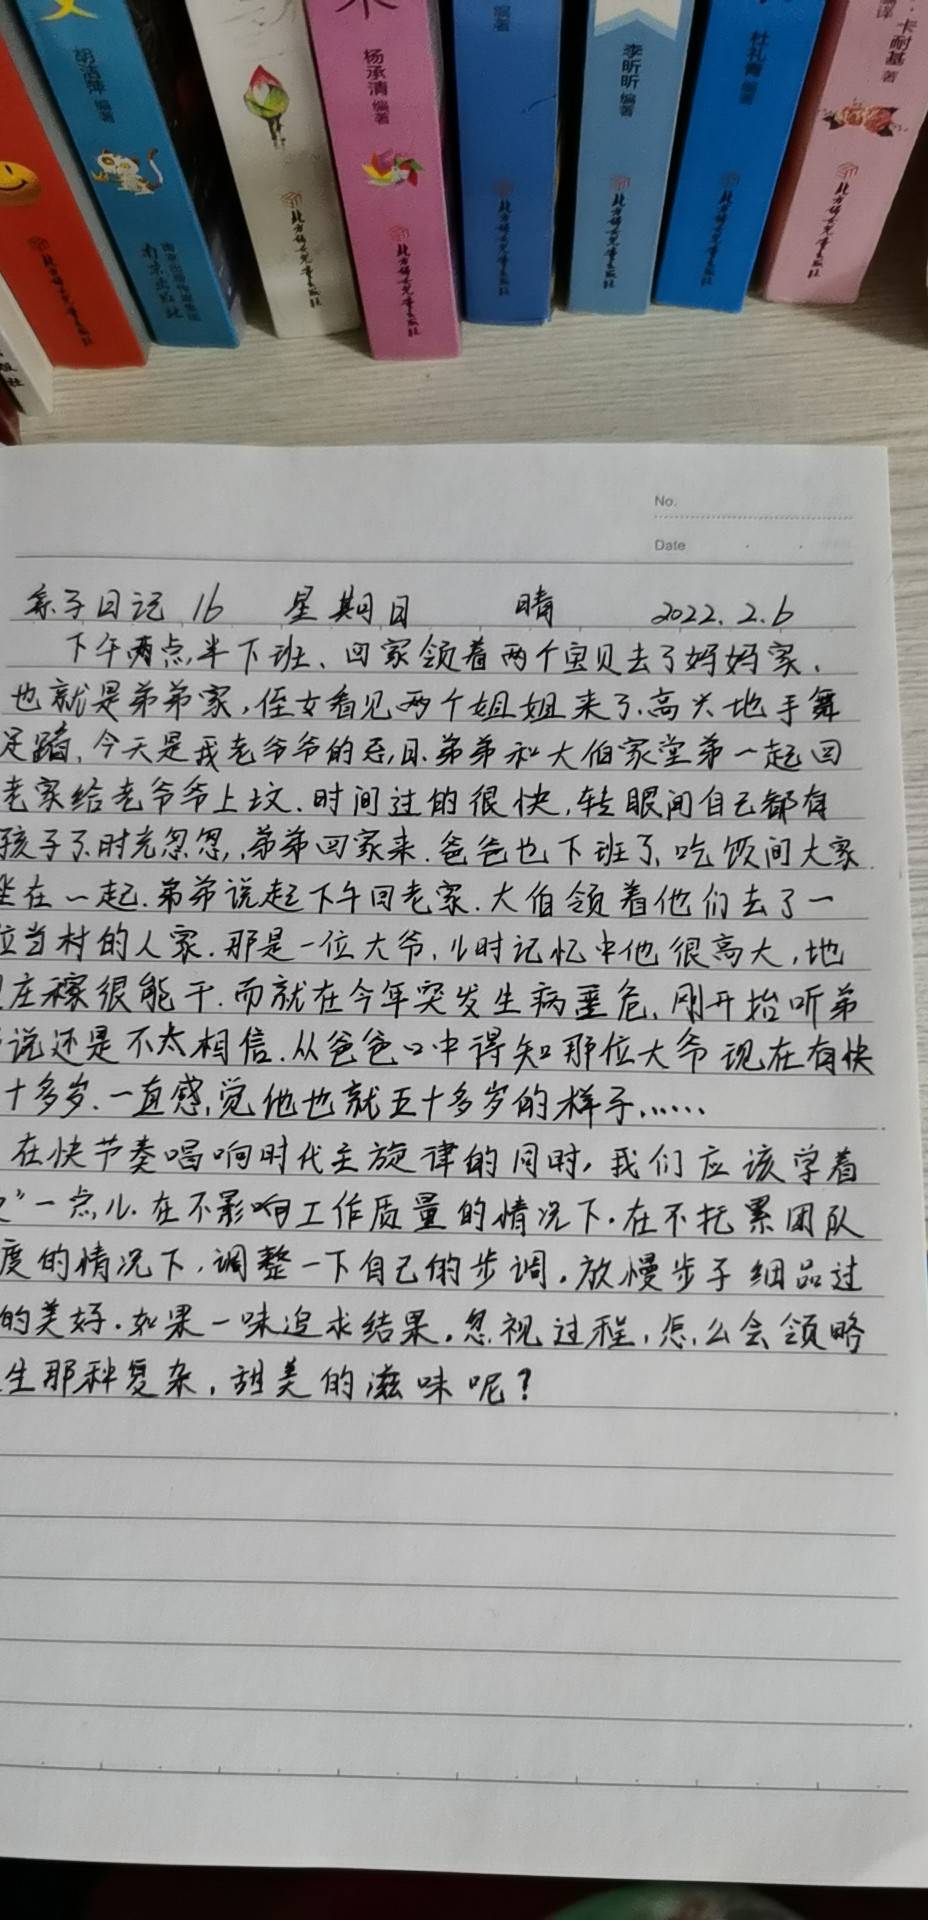 胡洁萍 编著
杨承清 编著
编著
李昕昕 编著
杜礼青 编著
卡耐基 著
编译
北方妇女儿童出版社
南京出版社
北方妇女儿童出版社
北方妇女儿童出版社
北方妇女儿童出版社
北方妇女儿童出版社
北方妇女儿童出版社
北方妇女儿童出版社
No.
Date
亲子日记 16 星期日 晴 2022.2.6
下午两点半下班、回家领着两个宝贝去了妈妈家,
也就是弟弟家,侄女看见两个姐姐来了,高兴地手舞
足蹈,今天是我老爷爷的忌日.弟弟和大伯家堂弟一起回
老家给老爷爷上坟.时间过的很快,转眼间自己都有
孩子了,时光忽忽,弟弟回家来.爸爸也下班了,吃饭间大家
坐在一起.弟弟说起下午回老家.大伯领着他们去了一
位当村的人家.那是一位大爷,儿时记忆中他很高大,地
庄稼很能干.而就在今年突发生病垂危,刚开始听弟
说还是不太相信.从爸爸口中得知那位大爷现在有快
十多岁.一直感觉他也就五十多岁的样子……
在快节奏唱响时代主旋律的同时,我们应该学着
”一点儿.在不影响工作质量的情况下.在不托累团队
度的情况下,调整一下自己的步调.放慢步子细品过
的美好.如果一味追求结果.忽视过程,怎么会领略
生那种复杂,甜美的滋味呢?